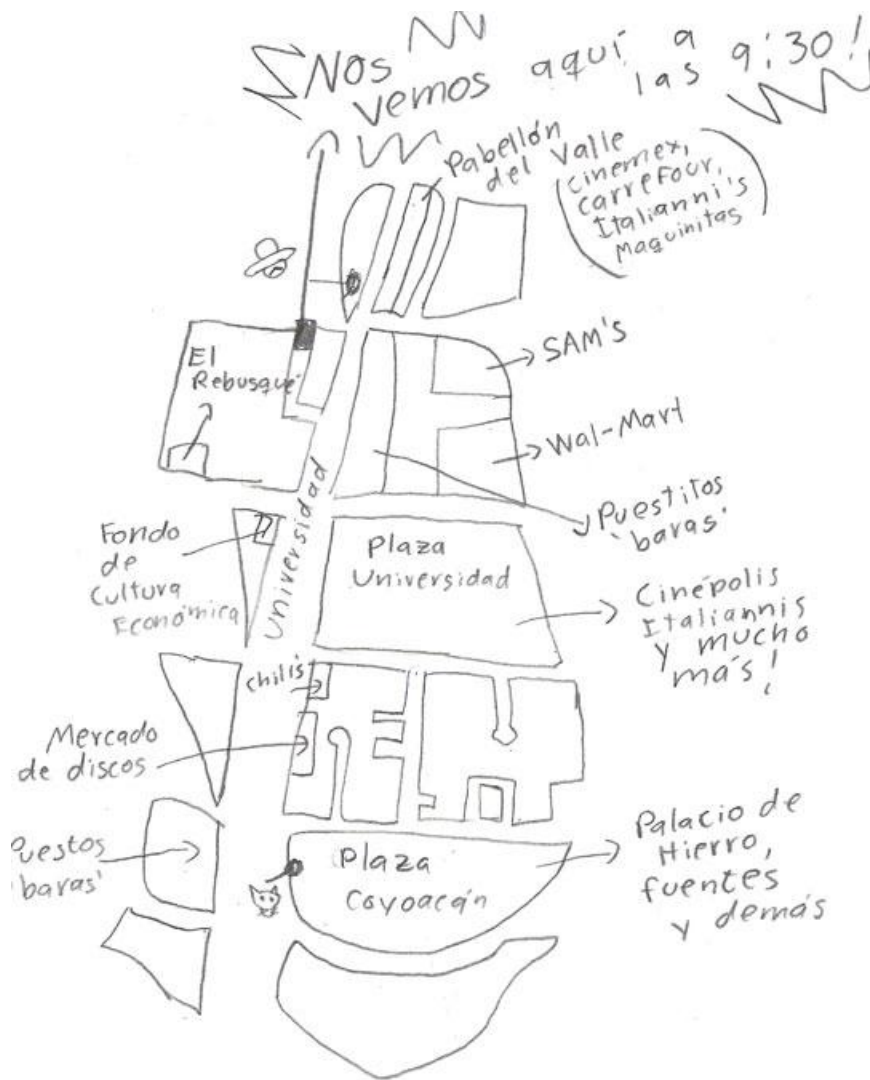 ¡Nos vemos aquí a las 9:30!
Pabellón
del Valle
(Cinemex,
Carrefour,
Italianni's
Maquinitas)
SAM'S
El
Rebusque
Wal-Mart
Puestitos
'baras'
Universidad
Fondo
de
Cultura
Económica
Plaza
Universidad
Cinépolis
Italiannis
y mucho
más!
Chilis
Mercado
de discos
Puestos
'baras'
Plaza
Coyoacán
Palacio de
Hierro,
fuentes
y demás